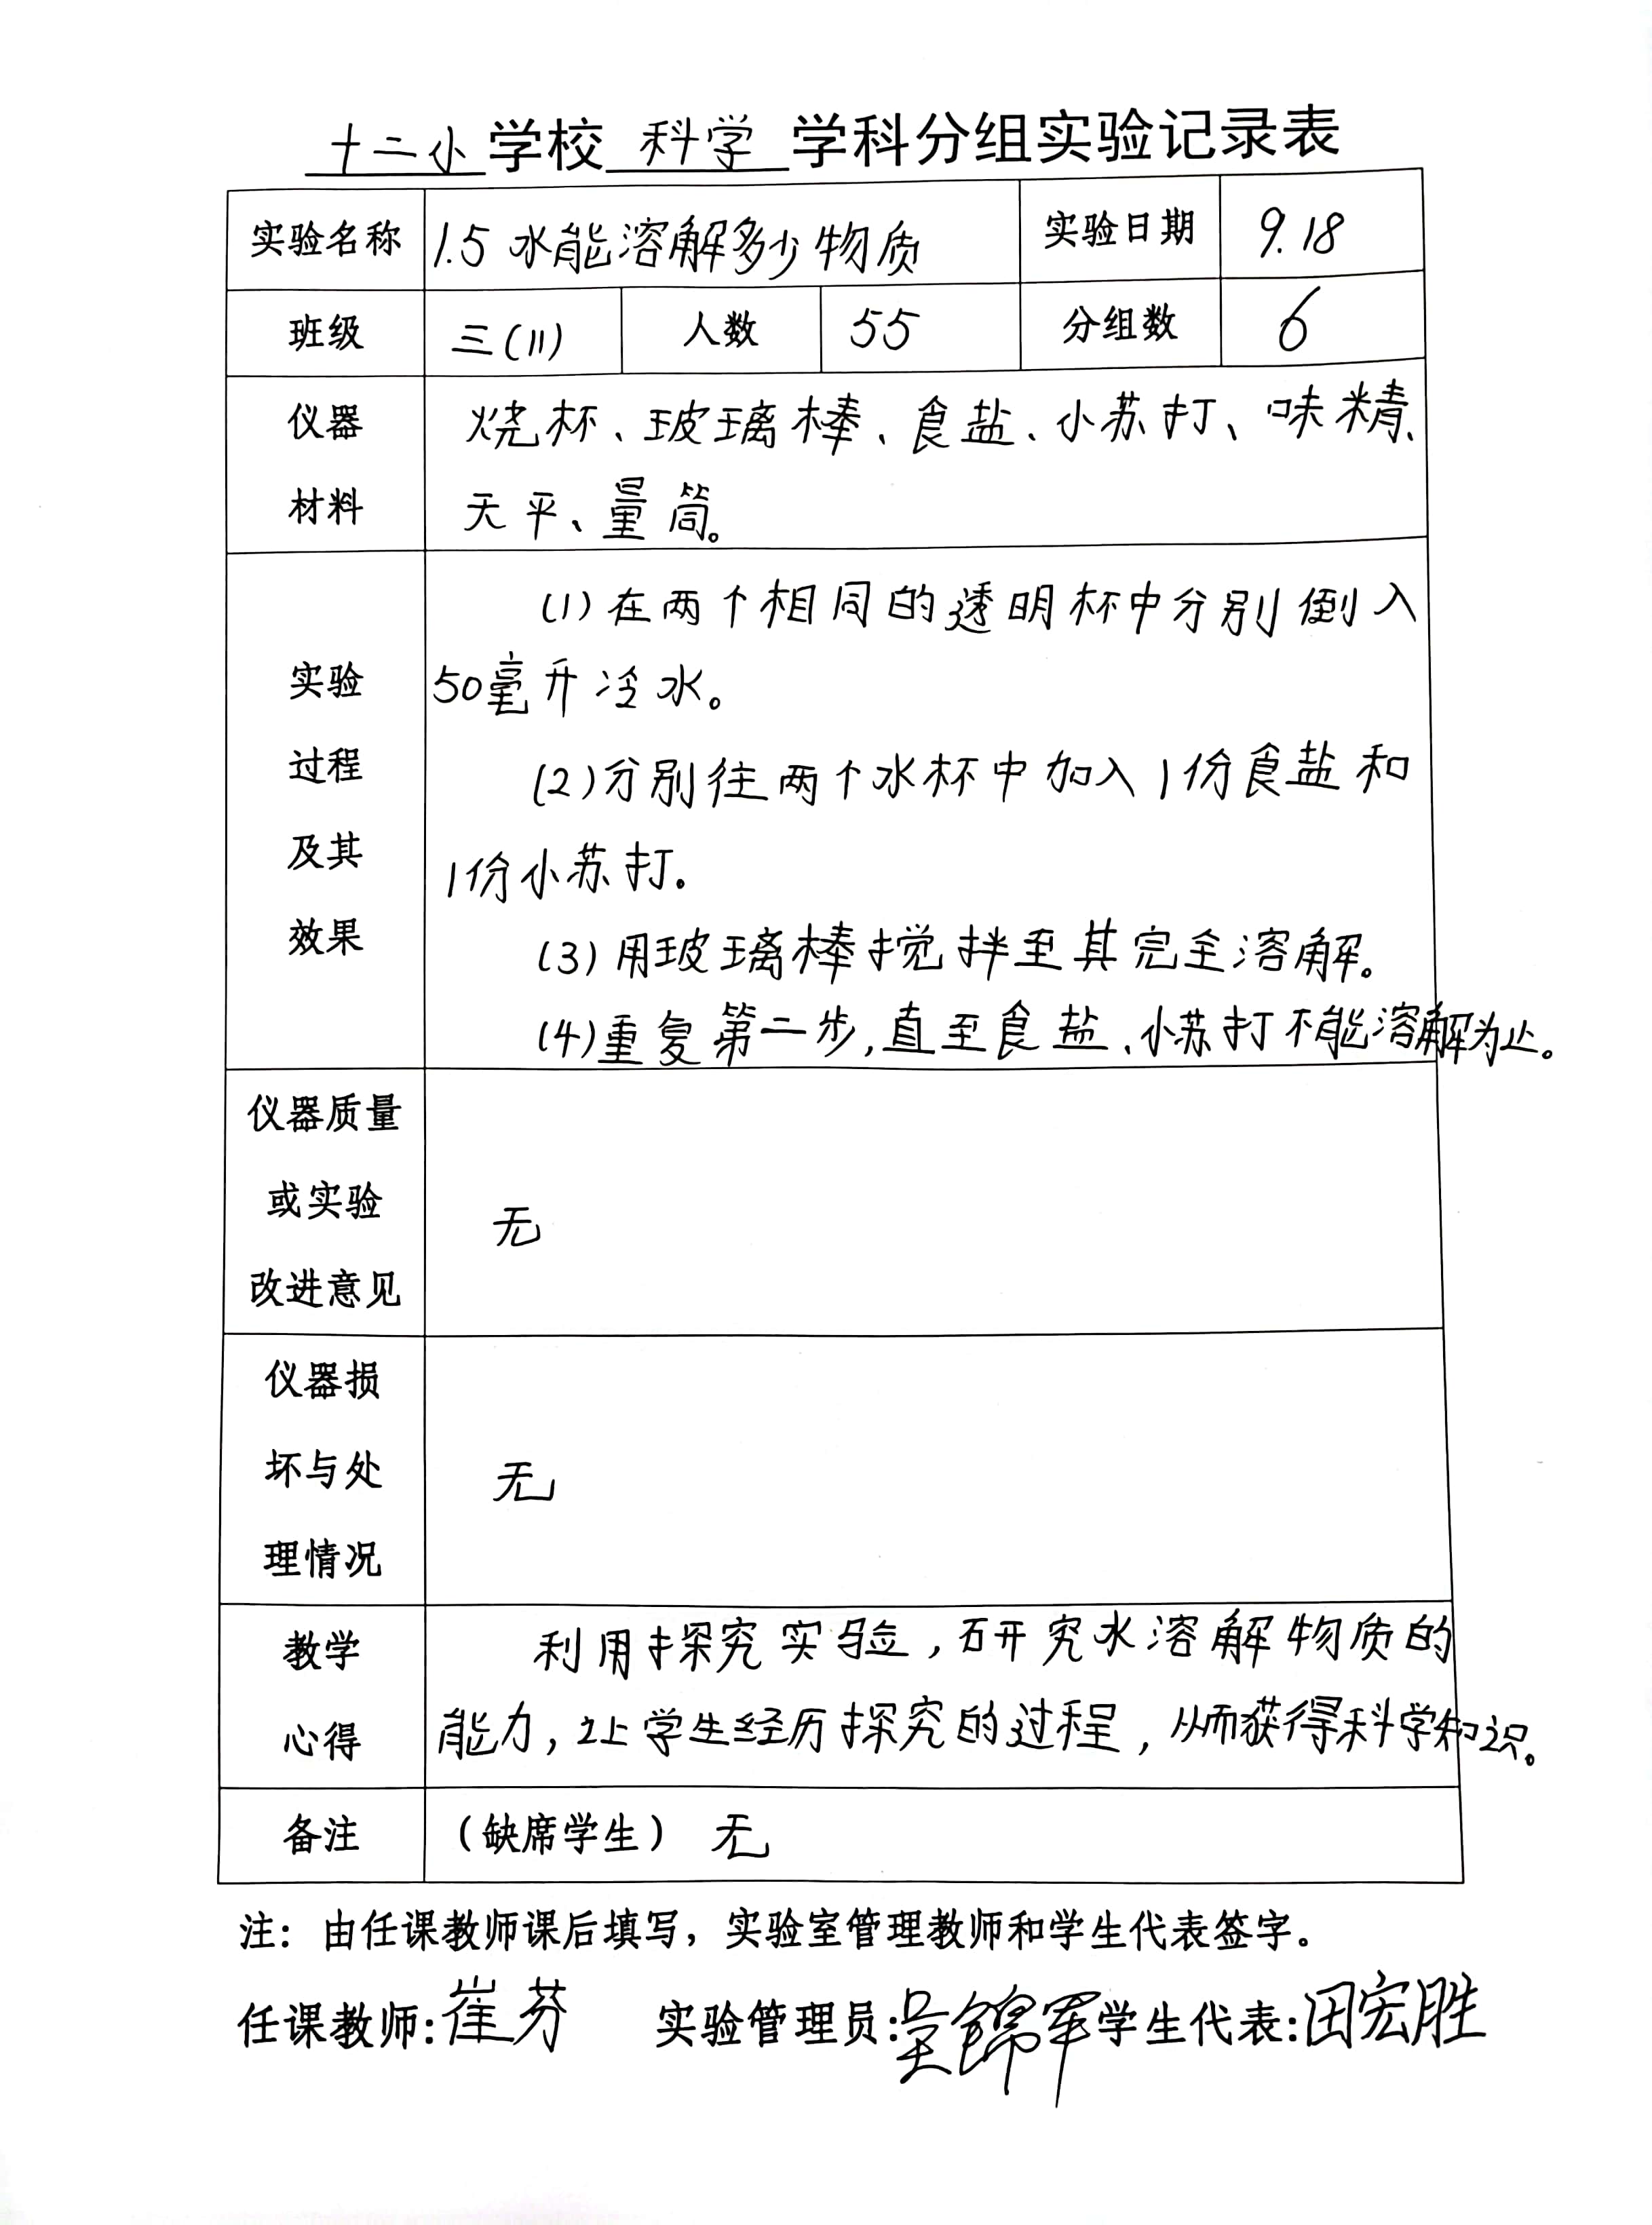 十二小学校 科学 学科分组实验记录表
实验名称 1.5 水能溶解多少物质 实验日期 9.18
班级 三(11) 人数 55 分组数 6
仪器 烧杯、玻璃棒、食盐、小苏打、味精、
材料 天平、量筒。
(1)在两个相同的透明杯中分别倒入
实验 50毫升冷水。
过程 (2)分别往两个水杯中加入1份食盐和
及其 1份小苏打。
效果 (3)用玻璃棒搅拌至其完全溶解。
(4)重复第二步,直至食盐、小苏打不能溶解为止。
仪器质量
或实验 无
改进意见
仪器损
坏与处 无
理情况
教学 利用探究实验,研究水溶解物质的
心得 能力,让学生经历探究的过程,从而获得科学知识。
备注 (缺席学生) 无
注:由任课教师课后填写,实验室管理教师和学生代表签字。
任课教师:崔芬 实验管理员:吴锦军 学生代表:田宏胜